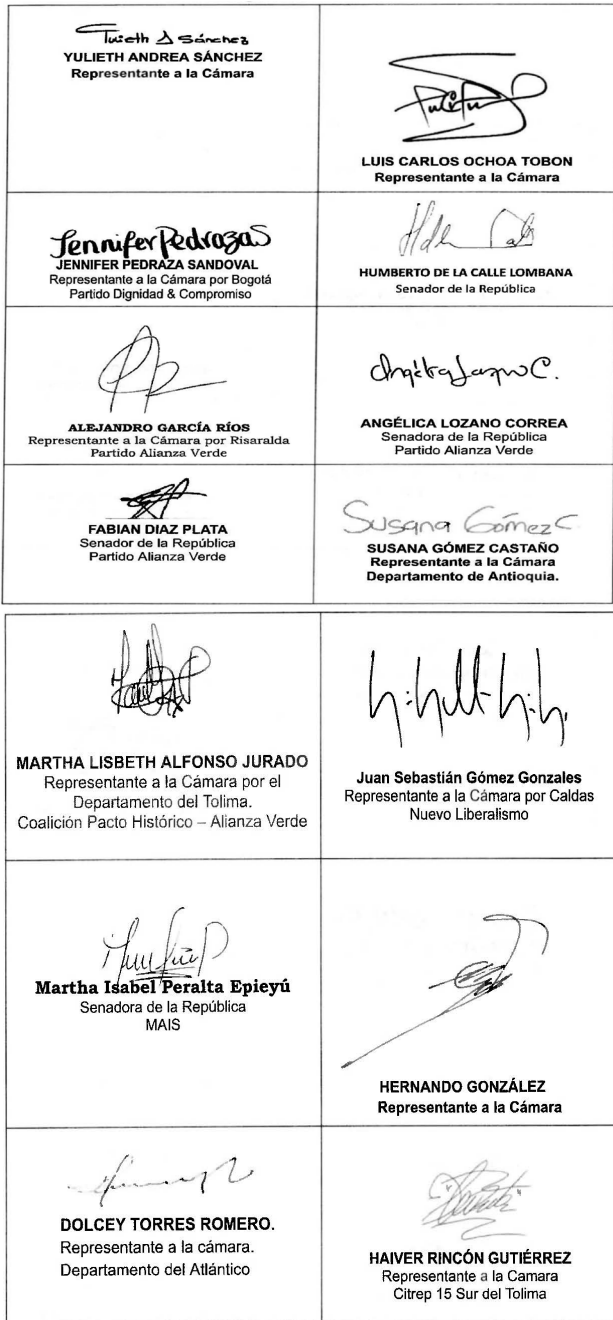 Yulieth A Sánchez
YULIETH ANDREA SÁNCHEZ
Representante a la Cámara
LUIS CARLOS OCHOA TOBON
Representante a la Cámara
Jennifer Pedraza S
JENNIFER PEDRAZA SANDOVAL
Representante a la Cámara por Bogotá
Partido Dignidad & Compromiso
HUMBERTO DE LA CALLE LOMBANA
Senador de la República
ALEJANDRO GARCÍA RÍOS
Representante a la Cámara por Risaralda
Partido Alianza Verde
Angélica Lozano C.
ANGÉLICA LOZANO CORREA
Senadora de la República
Partido Alianza Verde
FABIAN DIAZ PLATA
Senador de la República
Partido Alianza Verde
Susana Gómez C
SUSANA GÓMEZ CASTAÑO
Representante a la Cámara
Departamento de Antioquia.
MARTHA LISBETH ALFONSO JURADO
Representante a la Cámara por el
Departamento del Tolima.
Coalición Pacto Histórico – Alianza Verde
Juan Sebastián Gómez Gonzales
Representante a la Cámara por Caldas
Nuevo Liberalismo
Martha Isabel Peralta Epieyú
Senadora de la República
MAIS
HERNANDO GONZÁLEZ
Representante a la Cámara
DOLCEY TORRES ROMERO.
Representante a la cámara.
Departamento del Atlántico
HAIVER RINCÓN GUTIÉRREZ
Representante a la Camara
Citrep 15 Sur del Tolima